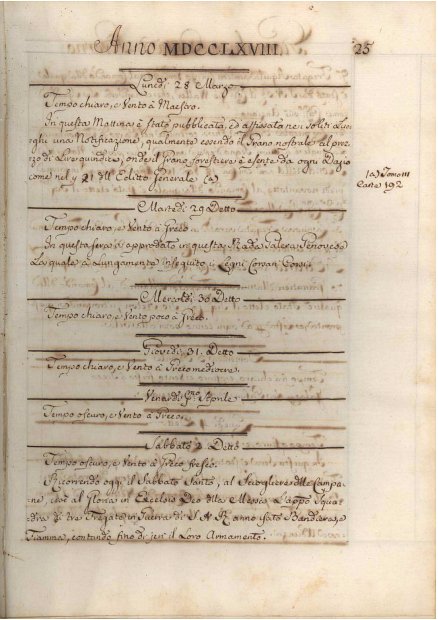 Anno MDCCLXVIII. 25
Lunedi 28 Marzo
Tempo chiaro, e Vento à Maestro.
In questa Mattina è stata pubblicata, ed affissata nei soliti Luo-
ghi una Notificazione, qualmente essendo il Grano nostrale al prez-
zo di Lire quindici, onde il Grano forestiero è esente da ogni Dazio
come nel 21 dell' Editto Generale (a)
(a) Tomo III
Carte 192
Martedi 29 Detto
Tempo chiaro, e Vento à Greco
In questa sera è approdata in questa Rada Galera Genovese
La quale à Lungamente inseguito i Legni Corsari Corsi.
Mercoldi 30 Detto
Tempo chiaro, e Vento poco à Greco.
Giovedi 31. Detto
Tempo chiaro, e Vento à Greco mediocre.
Venardi p.mo Aprile
Tempo oscuro, e Vento à Greco.
Sabbato 2 Detto
Tempo oscuro, e Vento à Greco fresco.
Ricorrendo oggi il Sabbato Santo, al Sciogliere delle Campa-
ne, cioè al Gloria in Excelsis Deo della Messa, L'appo Squa-
dra di tre Fregate in Guerra di S. A. R. anno isato Bandiera, e
Fiamma, contando fino di jeri il Loro Armamento.